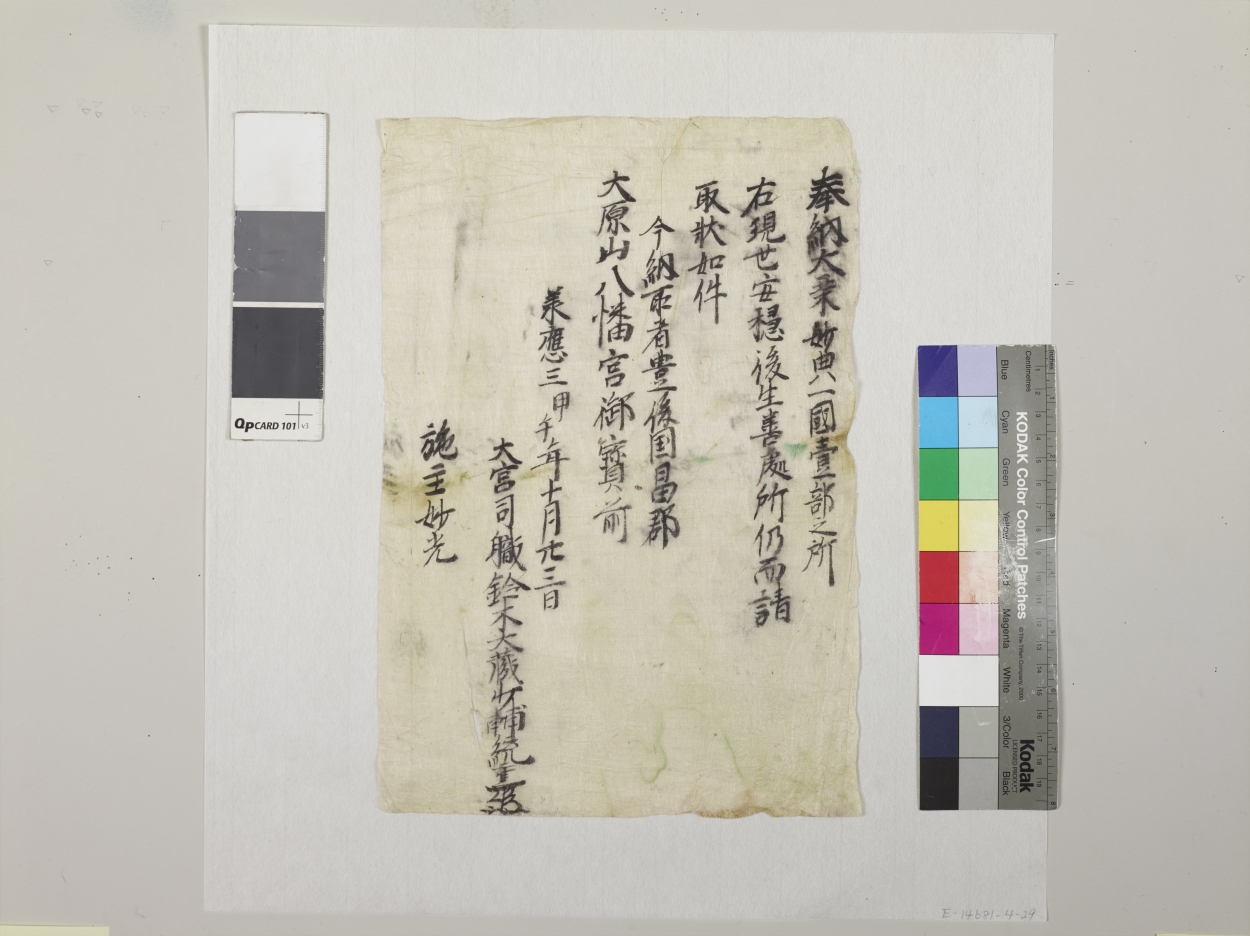 奉納大乗妙典一國壹部之所
右現世安穏後生善處所仍而請
取状如件
今納所者豊後国昌郡
大原山八幡宮御寳前
承應三甲午年十月廿三日
大宮司職鈴木大蔵少輔統重
施主妙光
QPCARD 101 v3
KODAK Color Control Patches
© The Tiffen Company, 2000
Kodak
LICENSED PRODUCT
Inches
Centimetres
Blue
Cyan
Green
Yellow
Red
Magenta
White
3/Color
Black
E-14681-4-29